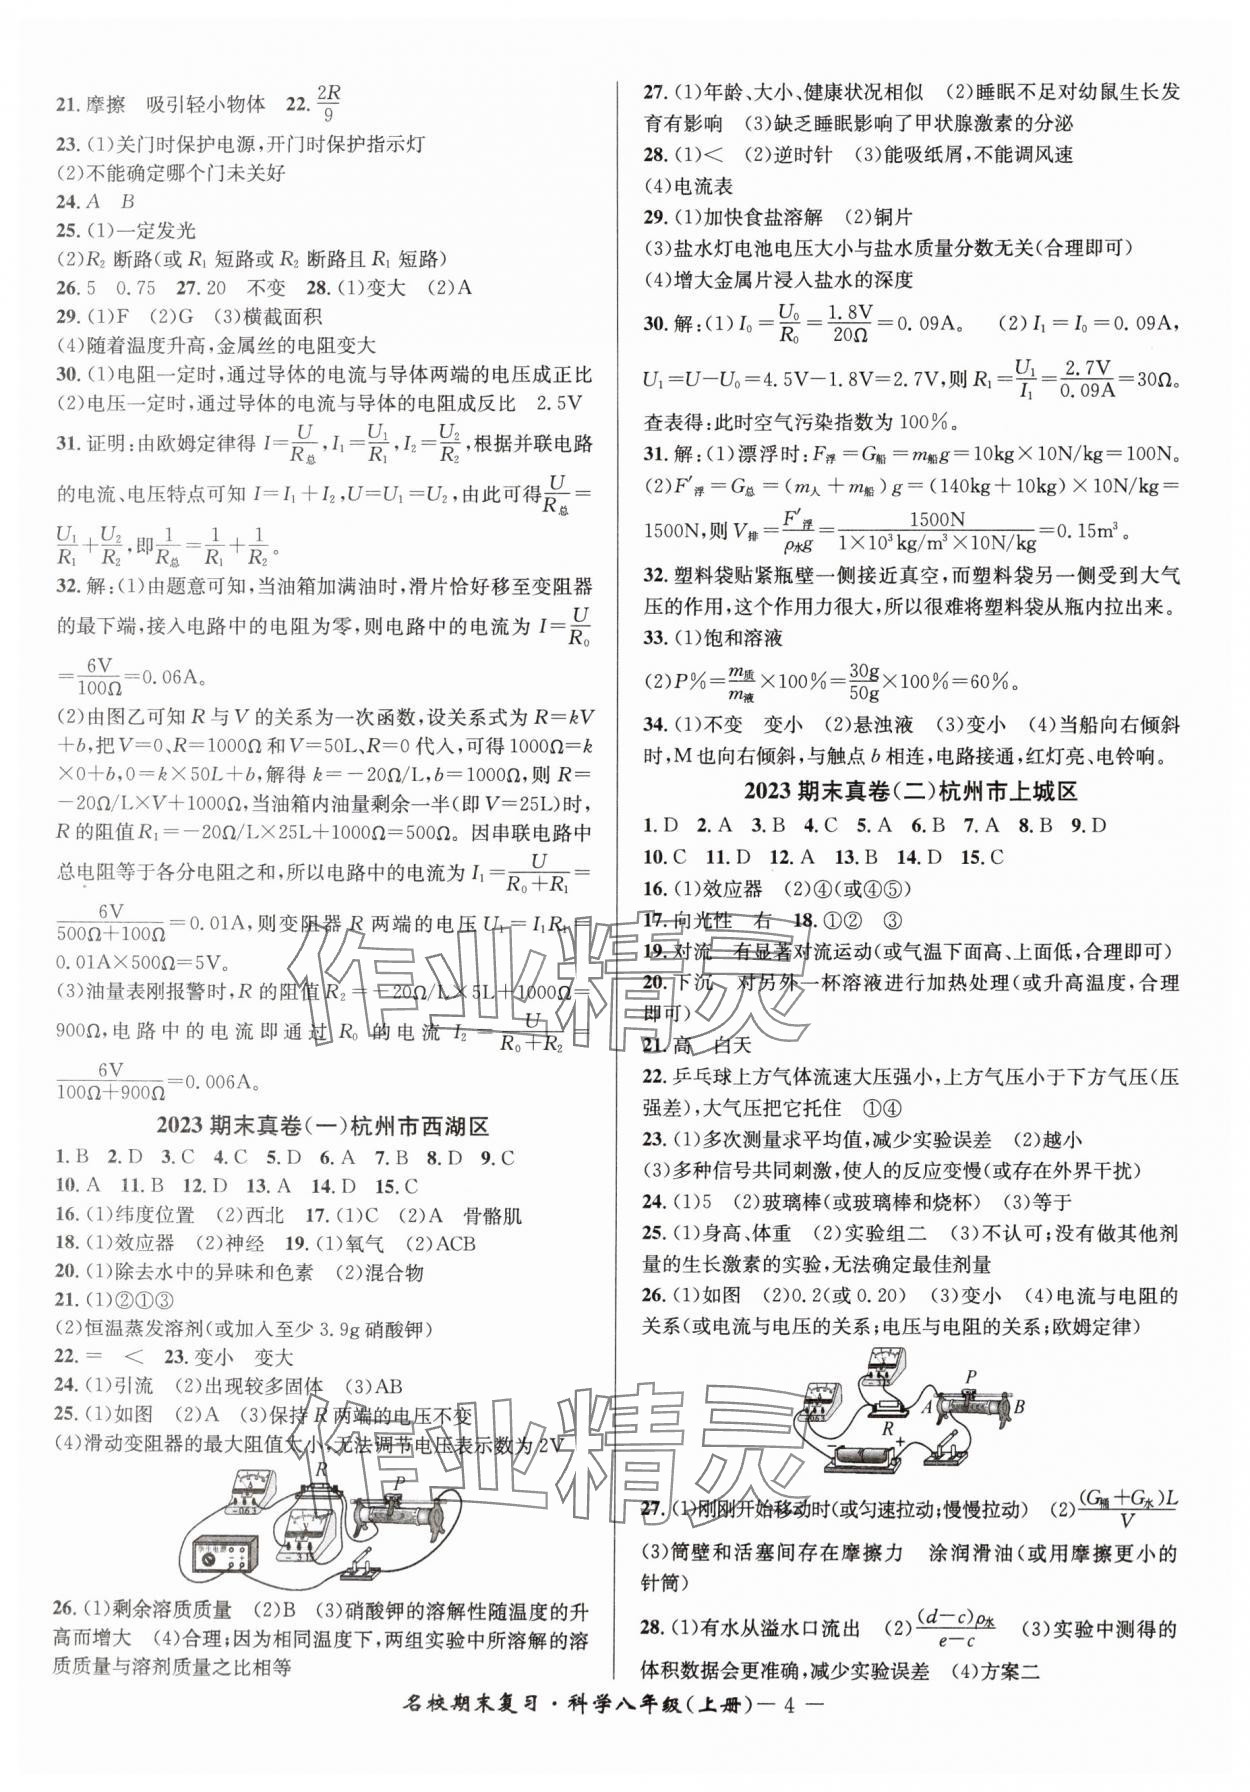 21.摩擦　吸引轻小物体　22.2R/9
23.(1)关门时保护电源,开门时保护指示灯
(2)不能确定哪个门未关好
24.A　B
25.(1)一定发光
(2)R₂断路(或R₁短路或R₂断路且R₁短路)
26.5　0.75　27.20　不变　28.(1)变大　(2)A
29.(1)F　(2)G　(3)横截面积
(4)随着温度升高,金属丝的电阻变大
30.(1)电阻一定时,通过导体的电流与导体两端的电压成正比
(2)电压一定时,通过导体的电流与导体的电阻成反比　2.5V
31.证明:由欧姆定律得I=U/R总,I₁=U₁/R₁,I₂=U₂/R₂,根据并联电路
的电流、电压特点可知I=I₁+I₂,U=U₁=U₂,由此可得U/R总=
U₁/R₁+U₂/R₂,即1/R总=1/R₁+1/R₂。
32.解:(1)由题意可知,当油箱加满油时,滑片恰好移至变阻器
的最下端,接入电路中的电阻为零,则电路中的电流为I=U/R₀
=6V/100Ω=0.06A。
(2)由图乙可知R与V的关系为一次函数,设关系式为R=kV
+b,把V=0、R=1000Ω和V=50L、R=0代入,可得1000Ω=k
×0+b,0=k×50L+b,解得k=-20Ω/L,b=1000Ω,则R=
-20Ω/L×V+1000Ω,当油箱内油量剩余一半(即V=25L)时,
R的阻值R₁=-20Ω/L×25L+1000Ω=500Ω。因串联电路中
总电阻等于各分电阻之和,所以电路中的电流为I₁=U/(R₀+R₁)=
6V/(500Ω+100Ω)=0.01A,则变阻器R两端的电压U₁=I₁R₁=
0.01A×500Ω=5V。
(3)油量表刚报警时,R的阻值R₂=-20Ω/L×5L+1000Ω=
900Ω,电路中的电流即通过R₀的电流I₂=U/(R₀+R₂)=
6V/(100Ω+900Ω)=0.006A。
2023期末真卷(一)杭州市西湖区
1.B　2.D　3.C　4.C　5.D　6.A　7.B　8.D　9.C
10.A　11.B　12.D　13.A　14.D　15.C
16.(1)纬度位置　(2)西北　17.(1)C　(2)A　骨骼肌
18.(1)效应器　(2)神经　19.(1)氧气　(2)ACB
20.(1)除去水中的异味和色素　(2)混合物
21.(1)②①③
(2)恒温蒸发溶剂(或加入至少3.9g硝酸钾)
22.=　<　23.变小　变大
24.(1)引流　(2)出现较多固体　(3)AB
25.(1)如图　(2)A　(3)保持R两端的电压不变
(4)滑动变阻器的最大阻值太小,无法调节电压表示数为2V
R
P
学生电源
26.(1)剩余溶质质量　(2)B　(3)硝酸钾的溶解性随温度的升
高而增大　(4)合理;因为相同温度下,两组实验中所溶解的溶
质质量与溶剂质量之比相等
27.(1)年龄、大小、健康状况相似　(2)睡眠不足对幼鼠生长发
育有影响　(3)缺乏睡眠影响了甲状腺激素的分泌
28.(1)<　(2)逆时针　(3)能吸纸屑,不能调风速
(4)电流表
29.(1)加快食盐溶解　(2)铜片
(3)盐水灯电池电压大小与盐水质量分数无关(合理即可)
(4)增大金属片浸入盐水的深度
30.解:(1)I₀=U₀/R₀=1.8V/20Ω=0.09A。　(2)I₁=I₀=0.09A,
U₁=U-U₀=4.5V-1.8V=2.7V,则R₁=U₁/I₁=2.7V/0.09A=30Ω。
查表得:此时空气污染指数为100%。
31.解:(1)漂浮时:F浮=G船=m船g=10kg×10N/kg=100N。
(2)F′浮=G总=(m人+m船)g=(140kg+10kg)×10N/kg=
1500N,则V排=F′浮/ρ水g=1500N/(1×10³kg/m³×10N/kg)=0.15m³。
32.塑料袋贴紧瓶壁一侧接近真空,而塑料袋另一侧受到大气
压的作用,这个作用力很大,所以很难将塑料袋从瓶内拉出来。
33.(1)饱和溶液
(2)P%=m质/m液×100%=30g/50g×100%=60%。
34.(1)不变　变小　(2)悬浊液　(3)变小　(4)当船向右倾斜
时,M也向右倾斜,与触点b相连,电路接通,红灯亮、电铃响。
2023期末真卷(二)杭州市上城区
1.D　2.A　3.B　4.C　5.A　6.B　7.A　8.B　9.D
10.C　11.D　12.A　13.B　14.D　15.C
16.(1)效应器　(2)④(或④⑤)
17.向光性　右　18.①②　③
19.对流　有显著对流运动(或气温下面高、上面低,合理即可)
20.下沉　对另外一杯溶液进行加热处理(或升高温度,合理
即可)
21.高　白天
22.乒乓球上方气体流速大压强小,上方气压小于下方气压(压
强差),大气压把它托住　①④
23.(1)多次测量求平均值,减少实验误差　(2)越小
(3)多种信号共同刺激,使人的反应变慢(或存在外界干扰)
24.(1)5　(2)玻璃棒(或玻璃棒和烧杯)　(3)等于
25.(1)身高、体重　(2)实验组二　(3)不认可;没有做其他剂
量的生长激素的实验,无法确定最佳剂量
26.(1)如图　(2)0.2(或0.20)　(3)变小　(4)电流与电阻的
关系(或电流与电压的关系;电压与电阻的关系;欧姆定律)
P
A
B
R
－　+
27.(1)刚刚开始移动时(或匀速拉动;慢慢拉动)　(2)(G桶+G水)L/V
(3)筒壁和活塞间存在摩擦力　涂润滑油(或用摩擦更小的
针筒)
28.(1)有水从溢水口流出　(2)(d-c)ρ水/(e-c)　(3)实验中测得的
体积数据会更准确,减少实验误差　(4)方案二
名校期末复习·科学八年级(上册)—4—
作业精灵
作业精灵